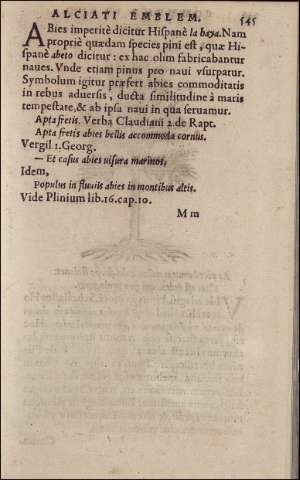 ALCIATI EMBLEM. 545
ABies imperitè dicitur Hispanè la haya. Nam
propriè quædam species pini est, quæ Hi-
spanè abeto dicitur: ex hac olim fabricabantur
naues. Vnde etiam pinus pro naui vsurpatur.
Symbolum igitur præfert abies commoditatis
in rebus aduersis, ducta similitudine à maris
tempestate, & ab ipsa naui in qua seruamur.
Apta fretis. Verba Claudiani 2. de Rapt.
Apta fretis abies bellis accommoda cornus.
Vergil 1. Georg.
— Et casus abies visura marinos,
Idem,
Populus in fluuiis abies in montibus altis.
Vide Plinium lib. 16. cap. 10.
M m